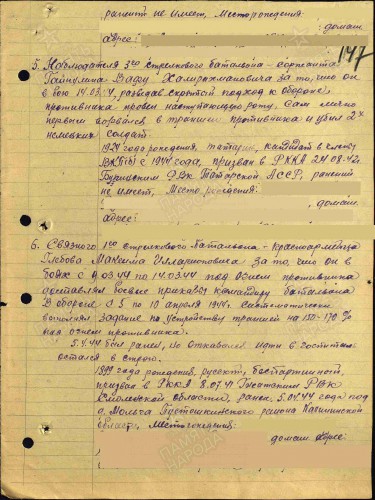 ранений не имеет, Место рождения:
домаш.
адрес:
147
5. Наблюдателя 3го стрелкового батальона - сержанта
Гайнулина Вафу Халирахмановича за то, что он
в бою 14.03.44, разведав скрытый подход к обороне
противника провел наступающую роту. Сам лично
первым ворвался в траншеи противника и убил 2х
немецких солдат.
года рождения, татарин, кандидат в члены
ВКП(б) с 1944 года, призван в РККА 24.08.42г.
РВК Татарской АССР, ранений
не имеет, Место рождения:
домаш.
адрес:
6. Связного 1го стрелкового батальона - красноармейца
Глебова Максима Илларионовича за то, что он в
боях с 9.03.44 по 14.03.44 под огнем противника
доставлял боевые приказы командиру батальона
В обороне с 5 по 10 апреля 1944г. систематически
выполнял задание по устройству траншей на 150-170%
под огнем противника.
5.4.44 был ранен, но отказался идти в госпиталь
остался в строю.
1899 года рождения, русский, беспартийный,
призван в РККА 8.07.41 Гжатским РВК
Смоленской области, ранен 5.04.44 года под
д. Пустошкинского района Калининской
области, Место рождения:
домаш. адрес: